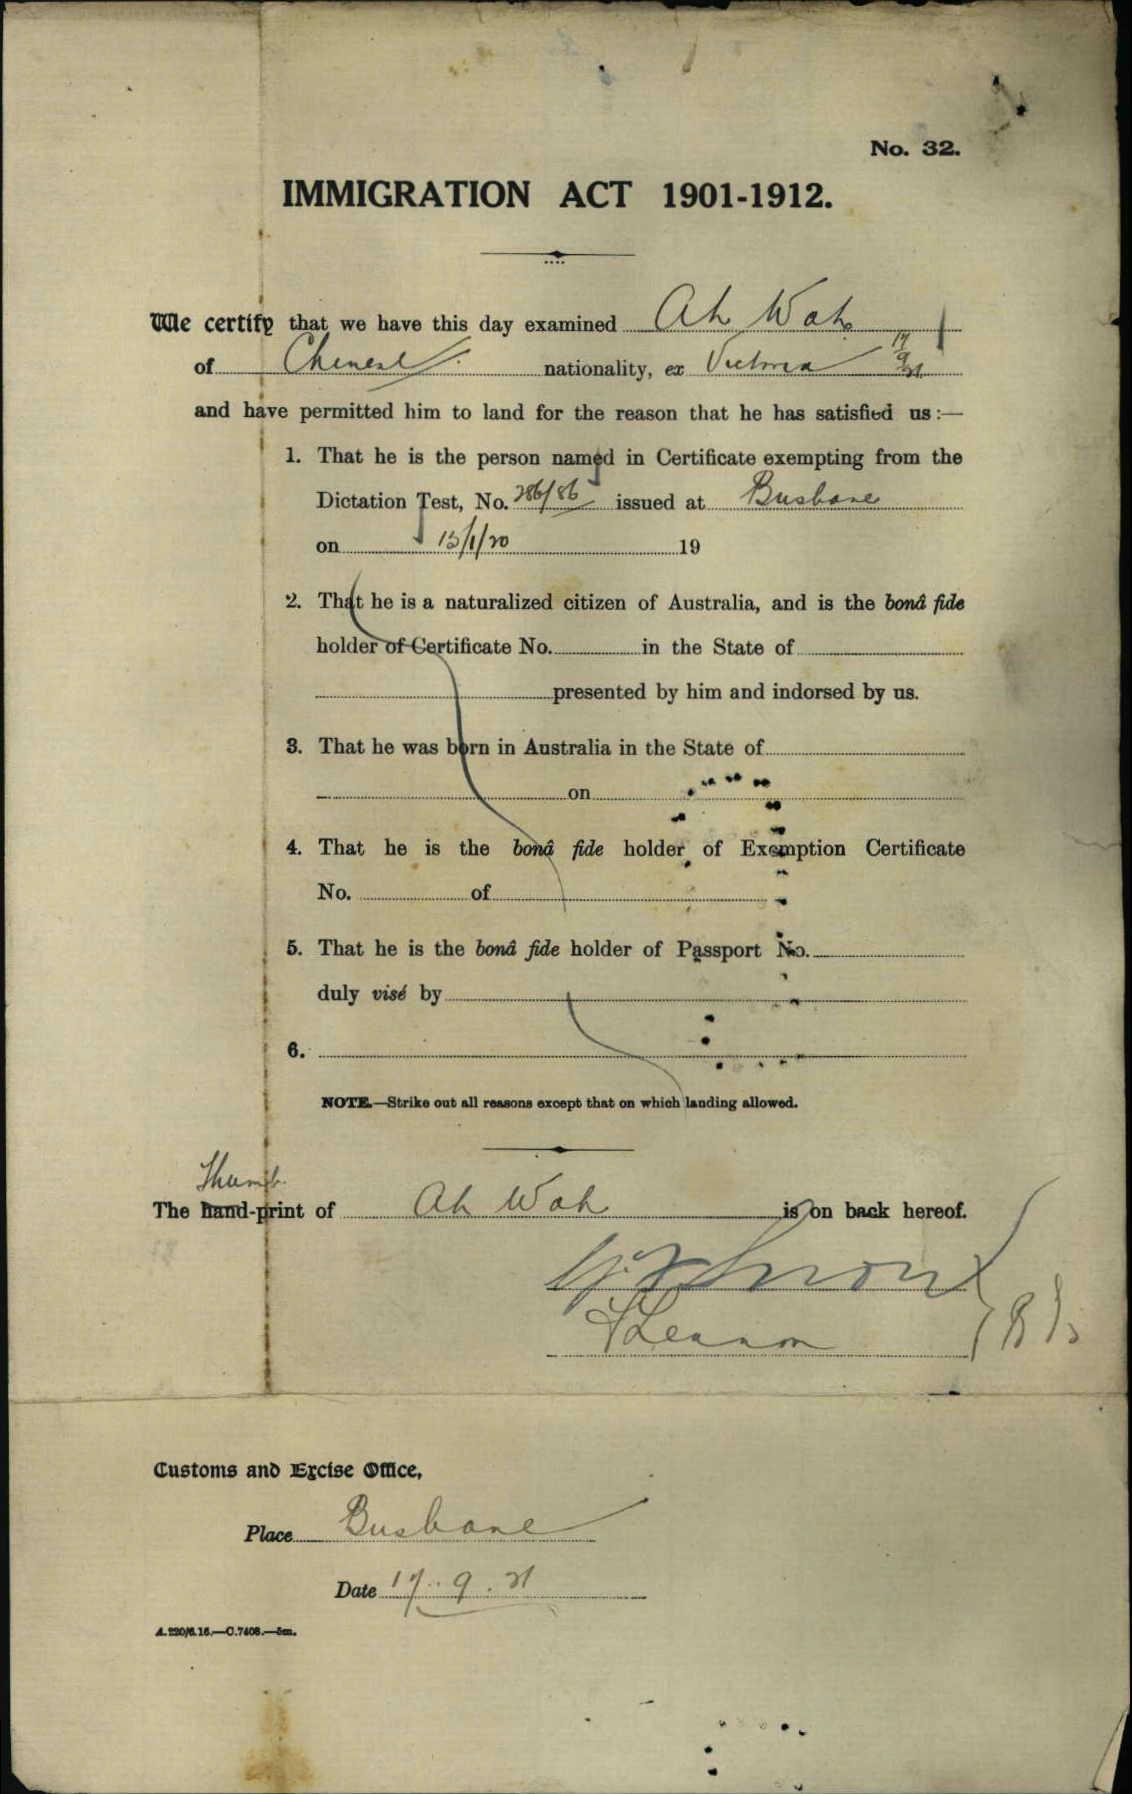 No. 32.
IMMIGRATION ACT 1901-1912.
We certify that we have this day examined Ah Wah
of Chinese nationality, ex Victoria 17/9/21
and have permitted him to land for the reason that he has satisfied us :—
1. That he is the person named in Certificate exempting from the
Dictation Test, No. 286/86 issued at Brisbane
on 13/1/20 19
2. That he is a naturalized citizen of Australia, and is the bonâ fide
holder of Certificate No. in the State of
presented by him and indorsed by us.
3. That he was born in Australia in the State of
on
4. That he is the bonâ fide holder of Exemption Certificate
No. of
5. That he is the bonâ fide holder of Passport No.
duly visé by
6.
NOTE.—Strike out all reasons except that on which landing allowed.
Thumb
The hand-print of Ah Wah is on back hereof.
Lennon
Customs and Excise Office,
Place Brisbane
Date 17.9.21
A.220/6.16.—C.7408.—5m.